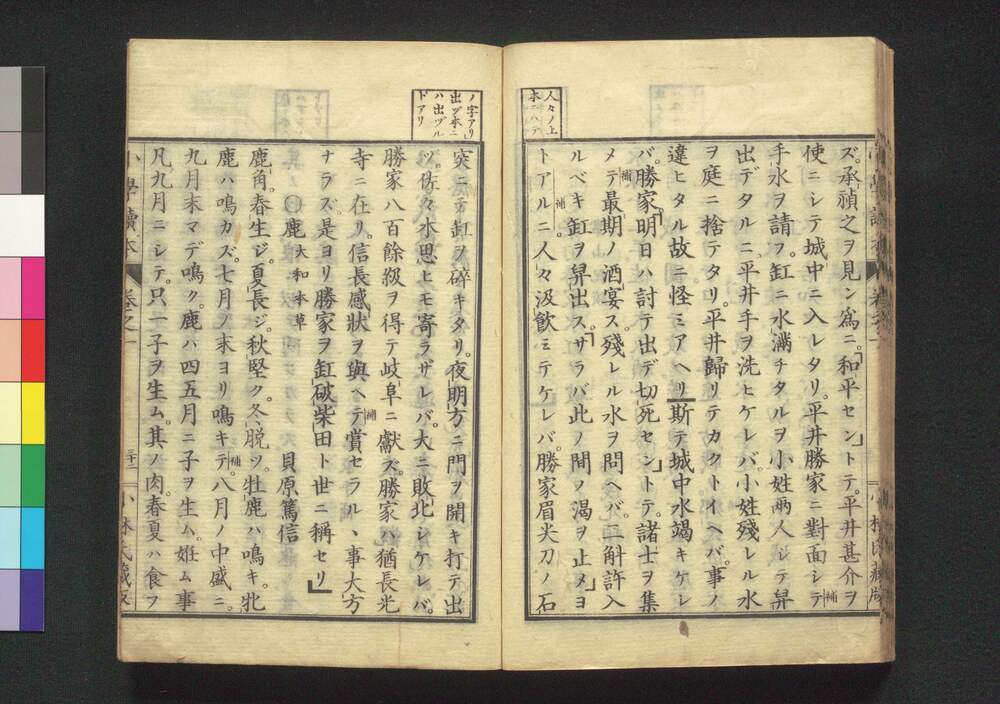 人々ノ上
本ニハテ
ズ。承禎之ヲ見ン爲ニ。「和平セン」トテ。平井甚介ヲ
使ニシテ城中ニ入レタリ。平井勝家ニ對面シテ補
手水ヲ請フ。缸ニ水滿チタルヲ小姓兩人シテ舁
出デタルニ。平井手ヲ洗ヒケレバ。小姓殘レル水
ヲ庭ニ捨テタリ。平井歸リテカクトイヘバ。事ノ
違ヒタル故ニ怪ミアヘリ。斯テ城中水竭キケレ
バ。勝家補「明日ハ討テ出デ切死セン」トテ。諸士ヲ集
メテ最期ノ酒宴ス。殘レル水ヲ問ヘバ。二斛許入
ルベキ缸ヲ舁出ス。「サラバ此ノ間ノ渴ヲ止メヨ」
トアル補ニ。人々汲飮ミテケレバ。勝家眉尖刀ノ石
小學讀本 卷之一
小林氏藏版
ノ字アリ」
出ヅ本ニ
ハ出ヅル
ドアリ
突ニテ缸ヲ碎キタリ。夜明方ニ門ヲ開キ打テ出
ヅ。佐々木思ヒモ寄ラザレバ。大ニ敗北シケレバ。
勝家八百餘級ヲ得テ岐阜ニ獻ズ。勝家ハ猶長光
寺ニ在リ。信長感狀ヲ與ヘテ補賞セラルヽ事大方
ナラズ。是ヨリ勝家ヲ缸破柴田ト世ニ稱セリ」
〇鹿 大和本草 貝原篤信
鹿角。春生ジ。夏長ジ。秋堅ク。冬脱ツ。牡鹿ハ鳴キ。牝
鹿ハ鳴カズ。七月ノ末ヨリ鳴キテ補。八月ノ中盛ニ。
九月末マデ鳴ク。鹿ハ四五月ニ子ヲ生ム。姙ム事
凡。九月ニシテ。只一子ヲ生ム。其ノ肉春夏ハ食フ
小學讀本 卷之一 三十二 小林氏藏版